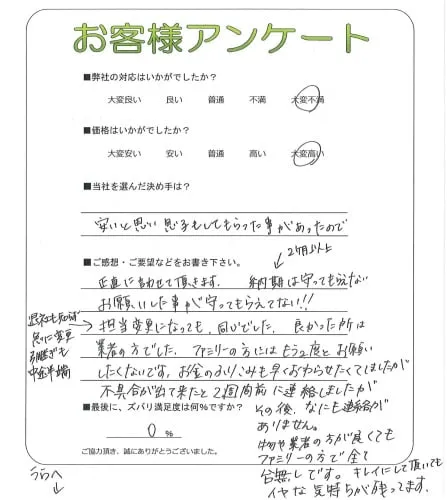 お客様アンケート
■弊社の対応はいかがでしたか?
大変良い 良い 普通 不満 大変不満
■価格はいかがでしたか?
大変安い 安い 普通 高い 大変高い
■当社を選んだ決め手は?
安いと思い 息子もしてもらった事があったので
2ヶ月以上
■ご感想・ご要望などをお書き下さい。
正直に言わせて頂きます。 納期は守ってもらえない
お願いした事が守ってもらえてない!!
退社も知らず
急に変更
引継ぎも
中途半端
担当変更になっても、同じでした。良かった所は
業者の方でした。ファミリーの方にはもう2度とお願い
したくないです。お金のふりこみも早くおわらせたくてしましたが
不具合が出て来たと2週間前に連絡しましたが
■最後に、ズバリ満足度は何%ですか?
その後、なにも連絡が
ありません。
0 %
物や業者の方が良くても
ファミリーの方で全て
ご協力頂き、誠にありがとうございました。
台無しです。キレイにして頂いても
イヤな気持ちが残ってます。
うらへ